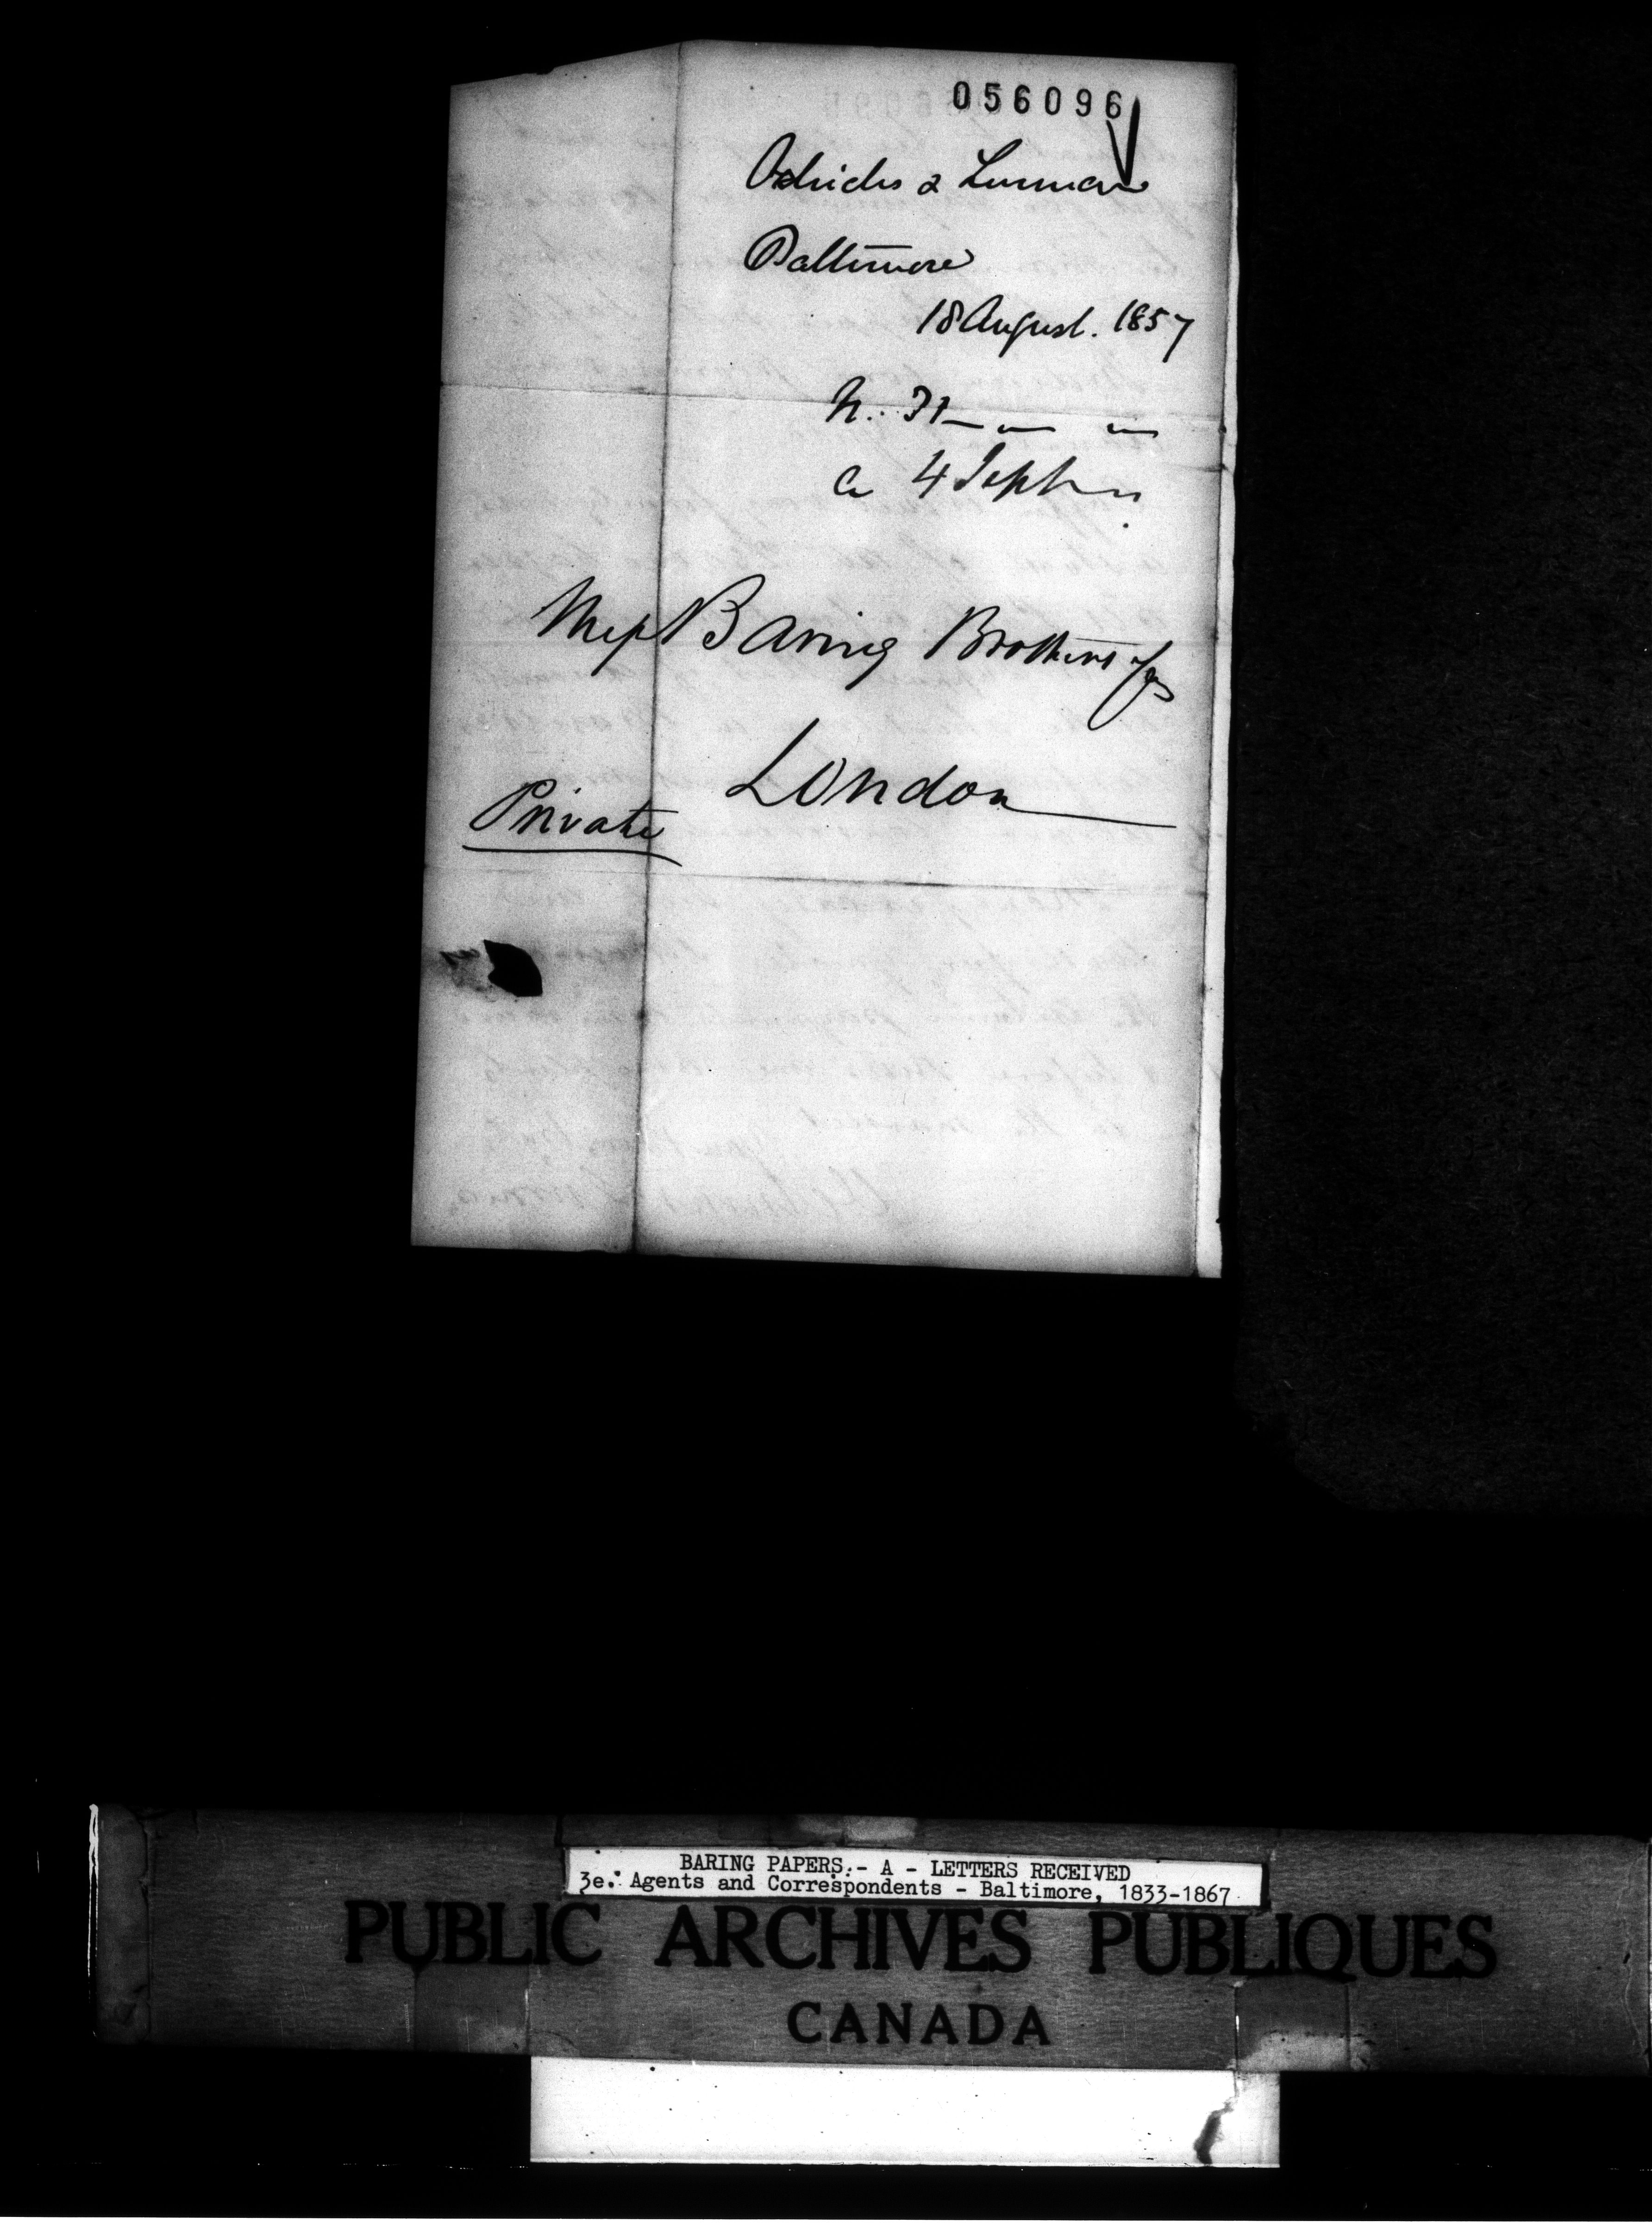 056096
Oelrichs & Lurman
Baltimore
18 August. 1857
R. 31
a 4 Septr
Mess Baring Brothers & Co
London
Private
BARING PAPERS.- A - LETTERS RECEIVED
3e. Agents and Correspondents - Baltimore, 1833-1867.
PUBLIC ARCHIVES PUBLIQUES
CANADA